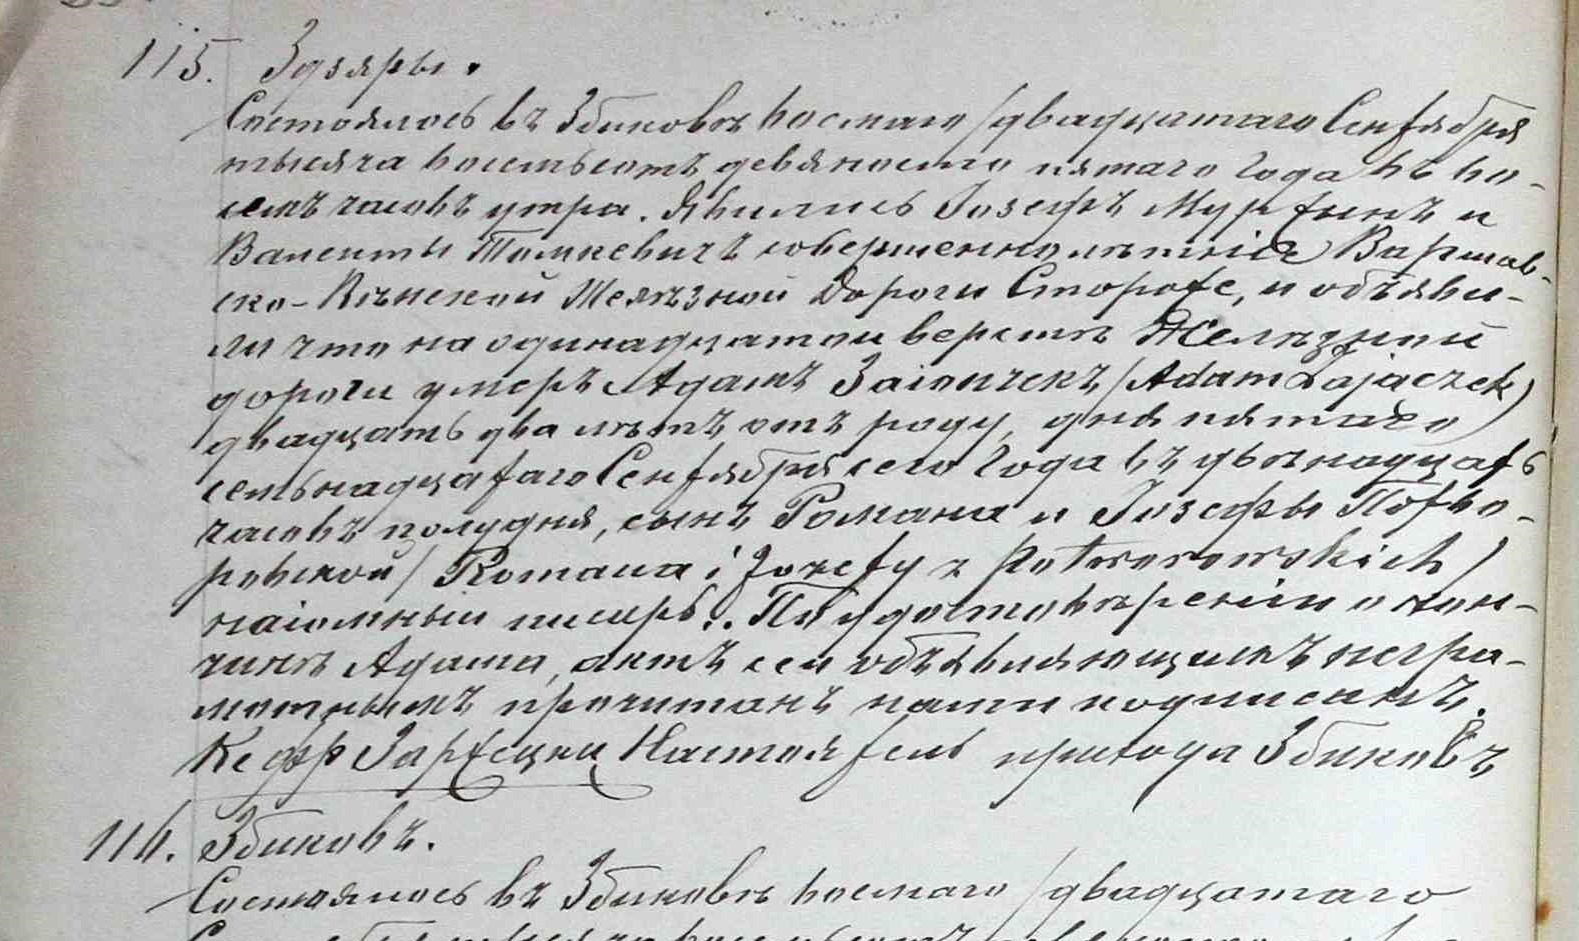 115. Здзяры.
Состоялось въ Збиковѣ восмаго /двадцатаго Сентября
тысяча восемьсотъ девяносто пятаго Года въ во-
семъ часовъ утра. Явились Іозефъ и
Валенты Томкевичъ совершеннолѣтніе Варшав-
ско-Вѣнской Желѣзной Дороги Стороже, и объяви-
ли что на одинадцатой верстѣ Желѣзной
дороги умеръ Адамъ Заіончекъ /Adam Zajączek/
двадцать два лѣтъ отъ роду, дня пятаго /
семьнадцатаго Сентября сего Года въ двѣнадцать
часовъ полудня, сынъ Романа и Іозефы Потво-
ровской / Romana i Jozefy z Potworowskich /
наіомный писарь. По удостовѣреніи о кон-
чинѣ Адама, актъ сей объявляющимъ негра-
мотнымъ прочитанъ нами подписанъ.
Настоятель прихода Збиковъ
116. Збиковъ.
Состоялось въ Збиковѣ восмаго /двадцатаго